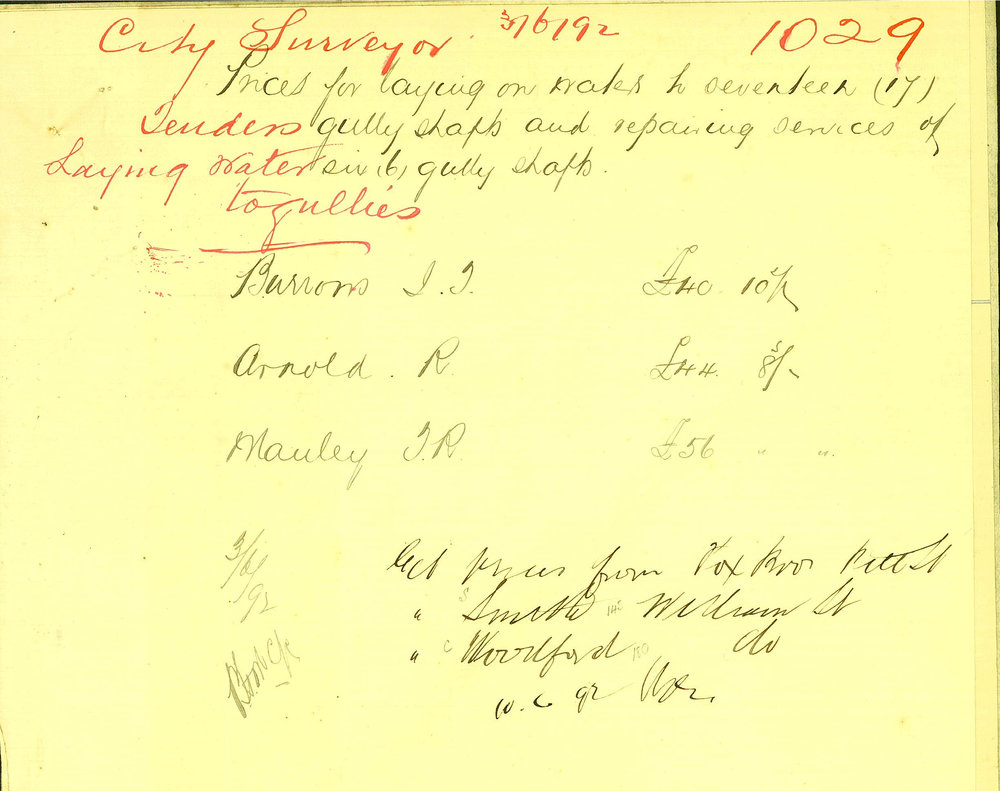 City Surveyor 3/6/92 1029
Prices for laying on water to seventeen (17)
Tenders gully shafts and repairing services of
Laying water six (6) gully shafts.
to gullies
Burrows J. T. £40 10/-
Arnold. R. £44. 8/-
Manley T. R. £56 " "
3/6/92 Get prices from Fox Bros Pitt St
" S Smith 142 William St
" C Woodford 180 do
10.6.92